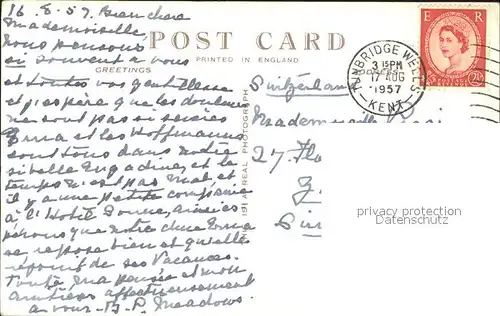 16.8.57. Bien chère
Mademoiselle,
Nous pensons
si souvent à vous
et toutes vos gentillesse
et j'espère que les douleurs
ne sont pas si
Erna et les Hoffmanns
sont tous dans notre
si belle Engadine, et le
temps n'est pas mal et
il y a une petite compagnie
à l'Hotel
pérons que notre chère Erna
se repose bien et qu'elle
de ses Vacances.
Toute ma pensée et mon
amitiés affectueusement
à vous. B. P. Meadows.
POST CARD
PRINTED IN ENGLAND
GREETINGS
THIS IS A REAL PHOTOGRAPH
E R
2½
TUNBRIDGE WELLS
3 15 PM
17 AUG
1957
KENT
Switzerland
Mademoiselle
27.
Z
privacy protection
Datenschutz